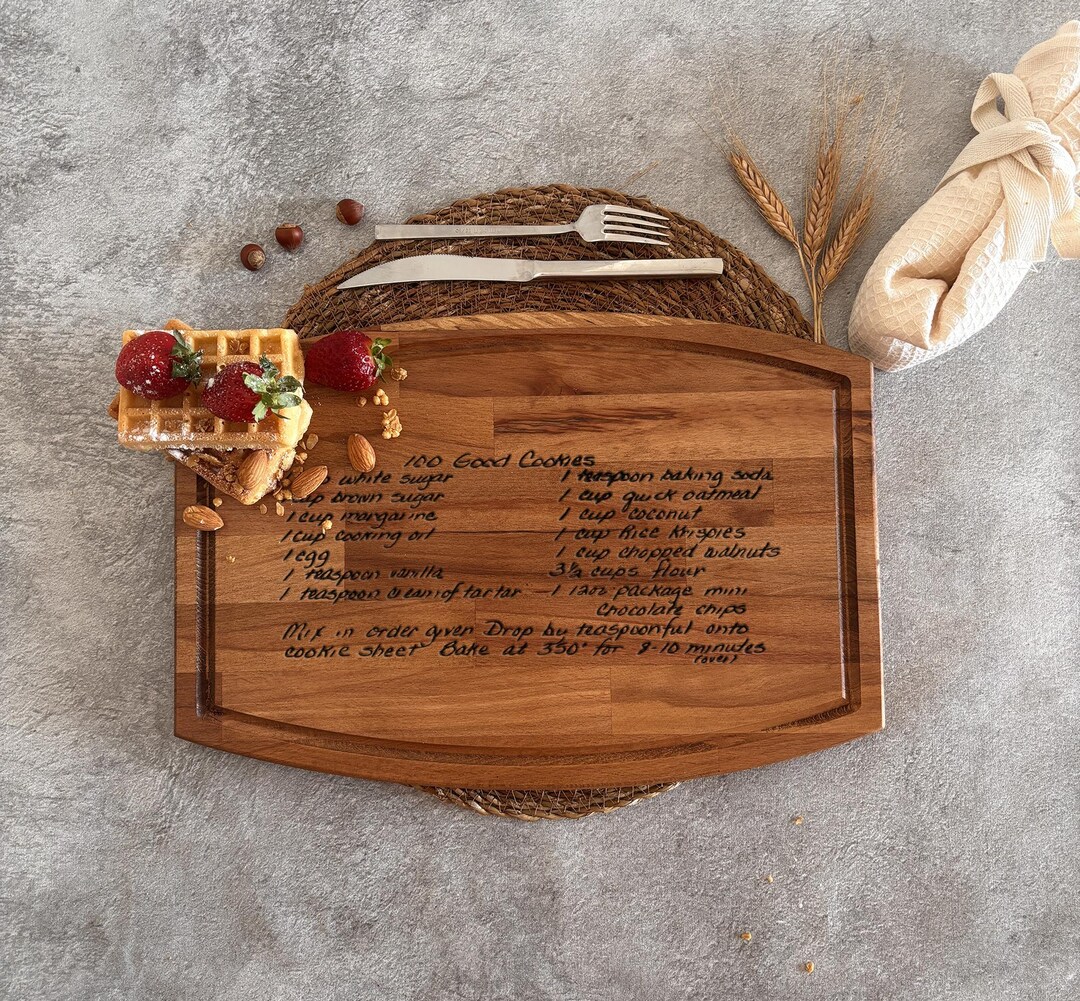 100 Good Cookies
white sugar
cup brown sugar
1 cup margarine
1 cup cooking oil
1 egg
1 teaspoon vanilla
1 teaspoon cream of tartar
1 teaspoon baking soda
1 cup quick oatmeal
1 cup coconut
1 cup Rice Krispies
1 cup chopped walnuts
3½ cups flour
1 12oz package mini
Chocolate chips
Mix in order given Drop by teaspoonful onto
cookie sheet Bake at 350° for 8-10 minutes
(over)